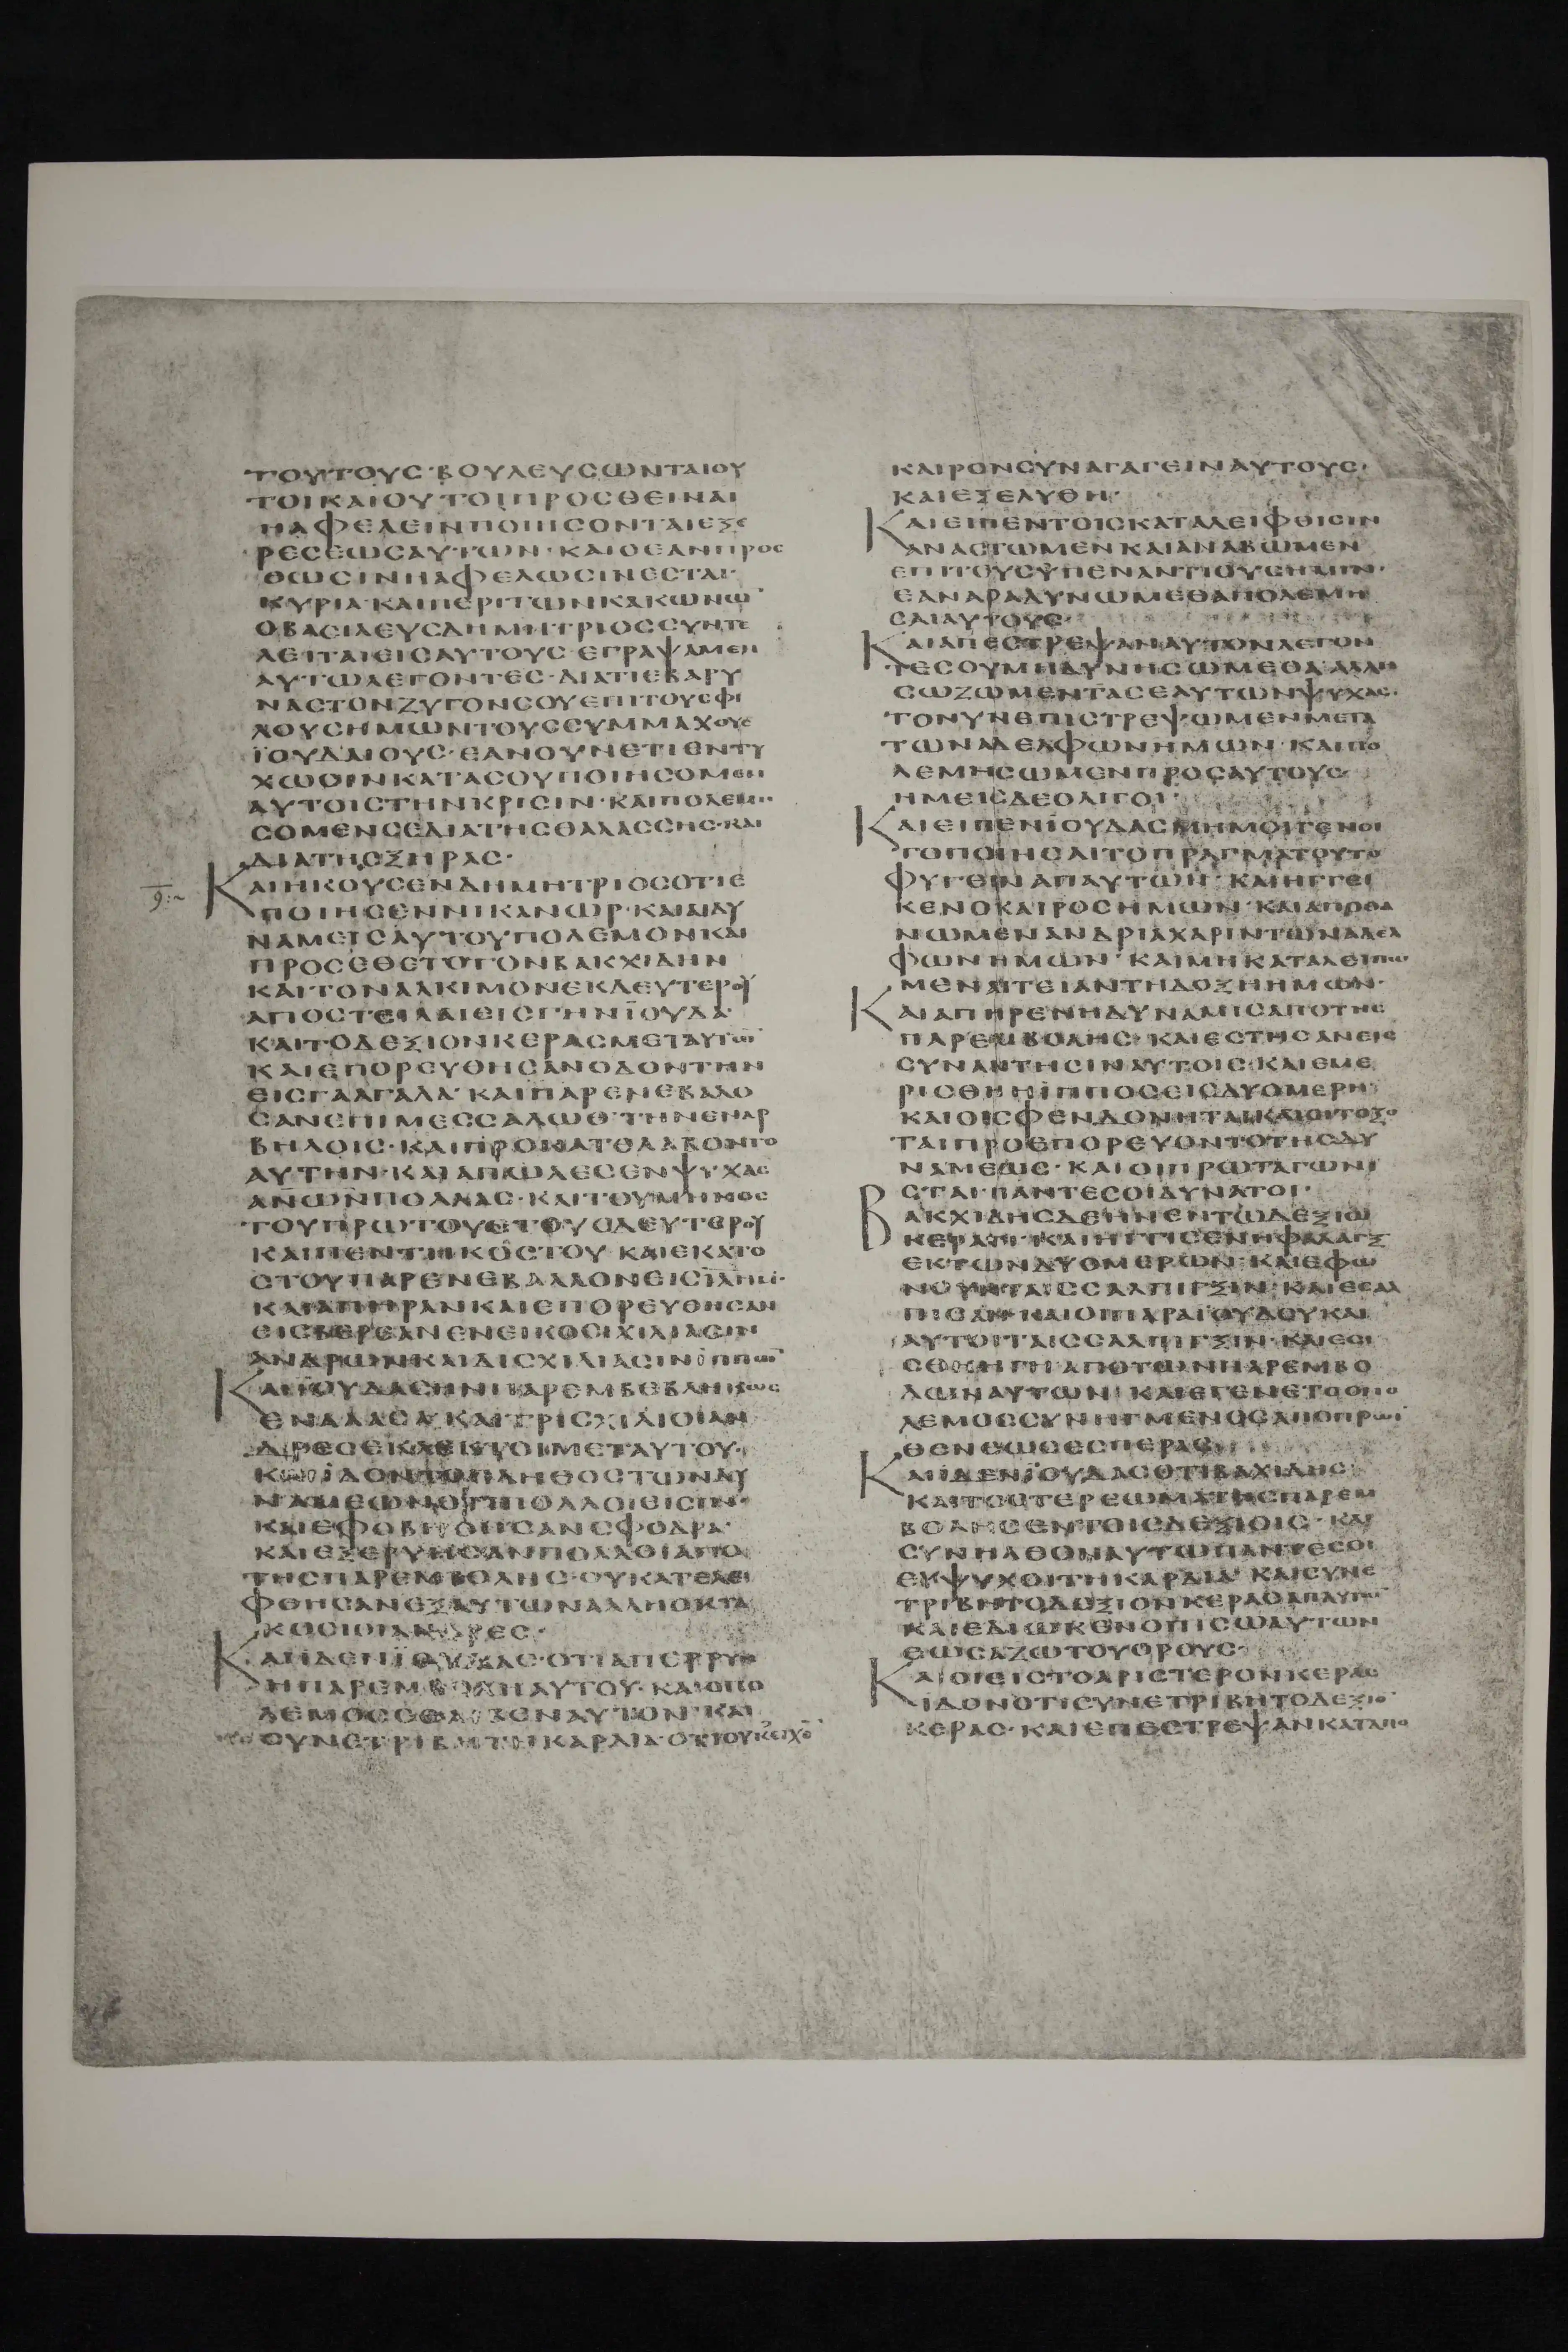 ΤΟΥΤΟΥΣ·ΒΟΥΛΕΥΣΩΝΤΑΙΟΥ
ΤΟΙΚΑΙΟΥΤΟΙΠΡΟΣΘΕΙΝΑΙ
ΗΑΦΕΛΕΙΝΠΟΙΗΣΟΝΤΑΙΕΞΕ
ΡΕΣΕΩΣΑΥΤΩΝ·ΚΑΙΟΕΑΝΠΡΟΣ
ΘΩΣΙΝΗΑΦΕΛΩΣΙΝΕΣΤΑΙ·
ΚΥΡΙΑ·ΚΑΙΠΕΡΙΤΩΝΚΑΚΩΝΩ̅
ΟΒΑΣΙΛΕΥΣΔΗΜΗΤΡΙΟΣΣΥΝΤΕ
ΛΕΙΤΑΙΕΙΣΑΥΤΟΥΣ·ΕΓΡΑΨΑΜΕΝ
ΑΥΤΩΛΕΓΟΝΤΕΣ·ΔΙΑΤΙΕΒΑΡΥ
ΝΑΣΤΟΝΖΥΓΟΝΣΟΥΕΠΙΤΟΥΣΦΙ
ΛΟΥΣΗΜΩΝΤΟΥΣΣΥΜΜΑΧΟΥΣ
ΪΟΥΔΑΙΟΥΣ·ΕΑΝΟΥΝΕΤΙΕΝΤΥ
ΧΩΣΙΝΚΑΤΑΣΟΥΠΟΙΗΣΟΜΕΝ
ΑΥΤΟΙΣΤΗΝΚΡΙΣΙΝ·ΚΑΙΠΟΛΕΜΗ
ΣΟΜΕΝΣΕΔΙΑΤΗΣΘΑΛΑΣΣΗΣ·ΚΑΙ
ΔΙΑΤΗΣΞΗΡΑΣ·
ΚΑΙΗΚΟΥΣΕΝΔΗΜΗΤΡΙΟΣΟΤΙΕ
ΠΟΙΗΣΕΝΝΙΚΑΝΩΡ·ΚΑΙΔΥ
ΝΑΜΕΙΣΑΥΤΟΥΠΟΛΕΜΟΝΚΑΙ
ΠΡΟΣΕΘΕΤΟΤΟΝΒΑΚΧΙΔΗΝ
ΚΑΙΤΟΝΑΛΚΙΜΟΝΕΚΔΕΥΤΕΡΟΥ
ΑΠΟΣΤΕΙΛΑΙΕΙΣΓΗΝΪΟΥΔΑ·
ΚΑΙΤΟΔΕΞΙΟΝΚΕΡΑΣΜΕΤΑΥΤΩ̅
ΚΑΙΕΠΟΡΕΥΘΗΣΑΝΟΔΟΝΤΗΝ
ΕΙΣΓΑΛΓΑΛΑ·ΚΑΙΠΑΡΕΝΕΒΑΛΟ
ΣΑΝΕΠΙΜΕΣΣΑΛΩΘ·ΤΗΝΕΝΑΡ
ΒΗΛΟΙΣ·ΚΑΙΠΡΟΚΑΤΕΛΑΒΟΝΤΟ
ΑΥΤΗΝ·ΚΑΙΑΠΩΛΕΣΕΝΨΥΧΑΣ
ΑΝ̅Ω̅Ν̅ΠΟΛΛΑΣ·ΚΑΙΤΟΥΜΗΝΟΣ
ΤΟΥΠΡΩΤΟΥΕΤΟΥΣΔΕΥΤΕΡΟΥ
ΚΑΙΠΕΝΤΗΚΟΣΤΟΥ ΚΑΙΕΚΑΤΟ
ΣΤΟΥΠΑΡΕΝΕΒΑΛΛΟΝΕΙΣΙΛΗΜ·
ΚΑΙΑΠΗΡΑΝΚΑΙΕΠΟΡΕΥΘΗΣΑΝ
ΕΙΣΒΕΡΕΑΝΕΝΕΙΚΟΣΙΧΙΛΙΑΣΙΝ
ΑΝΔΡΩΝΚΑΙΔΙΣΧΙΛΙΑΣΙΝΪΠΠΩ̅
ΚΑΙΪΟΥΔΑΣΗΝΠΑΡΕΜΒΕΒΛΗΚΩΣ
ΕΝΑΛΑΣΑ·ΚΑΙΤΡΙΣΧΙΛΙΟΙΑΝ
ΔΡΕΣΕΚΛΕΚΤΟΙΜΕΤΑΥΤΟΥ·
ΚΑΙΪΔΟΝΤΟΠΛΗΘΟΣΤΩΝΔΥ
ΝΑΜΕΩΝΟΤΙΠΟΛΛΟΙΕΙΣΙΝ·
ΚΑΙΕΦΟΒΗΘΗΣΑΝΣΦΟΔΡΑ·
ΚΑΙΕΞΕΡΥΗΣΑΝΠΟΛΛΟΙΑΠΟ
ΤΗΣΠΑΡΕΜΒΟΛΗΣ·ΟΥΚΑΤΕΛΕΙ
ΦΘΗΣΑΝΕΞΑΥΤΩΝΑΛΛΗΟΚΤΑ
ΚΟΣΙΟΙΑΝΔΡΕΣ·
ΚΑΙΪΔΕΝΪΟΥΔΑΣ·ΟΤΙΑΠΕΡΡΥΗ
ΗΠΑΡΕΜΒΟΛΗΑΥΤΟΥ·ΚΑΙΟΠΟ
ΛΕΜΟΣΕΘΛΙΒΕΝΑΥΤΟΝ·ΚΑΙ
ΣΥΝΕΤΡΙΒΗΤΗΚΑΡΔΙΑ·ΟΤΙΟΥΚΕΙΧΕ̅
ΚΑΙΡΟΝΣΥΝΑΓΑΓΕΙΝΑΥΤΟΥΣ·
ΚΑΙΕΞΕΛΥΘΗ·
ΚΑΙΕΙΠΕΝΤΟΙΣΚΑΤΑΛΕΙΦΘΙΣΙΝ
ΑΝΑΣΤΩΜΕΝΚΑΙΑΝΑΒΩΜΕΝ
ΕΠΙΤΟΥΣΫΠΕΝΑΝΤΙΟΥΣΗΜΙΝ·
ΕΑΝΑΡΑΔΥΝΩΜΕΘΑΠΟΛΕΜΗ
ΣΑΙΑΥΤΟΥΣ·
ΚΑΙΑΠΕΣΤΡΕΨΑΝΑΥΤΟΝΛΕΓΟΝ
ΤΕΣΟΥΜΗΔΥΝΗΣΩΜΕΘΑ·ΑΛΛΗ
ΣΩΖΩΜΕΝΤΑΣΕΑΥΤΩΝΨΥΧΑΣ·
ΤΟΝΥΝΕΠΙΣΤΡΕΨΩΜΕΝΜΕΤΑ
ΤΩΝΑΔΕΛΦΩΝΗΜΩΝ·ΚΑΙΠΟ
ΛΕΜΗΣΩΜΕΝΠΡΟΣΑΥΤΟΥΣ·
ΗΜΕΙΣΔΕΟΛΙΓΟΙ·
ΚΑΙΕΙΠΕΝΪΟΥΔΑΣΜΗΜΟΙΓΕΝΟΙ
ΤΟΠΟΙΗΣΑΙΤΟΠΡΑΓΜΑΤΟΥΤΟ
ΦΥΓΕΙΝΑΠΑΥΤΩΝ·ΚΑΙΗΓΓΕΙ
ΚΕΝΟΚΑΙΡΟΣΗΜΩΝ·ΚΑΙΑΠΟΘΑ
ΝΩΜΕΝΑΝΔΡΙΑΧΑΡΙΝΤΩΝΑΔΕΛ
ΦΩΝΗΜΩΝ·ΚΑΙΜΗΚΑΤΑΛΕΙΠΩ
ΜΕΝΑΙΤΕΙΑΝΤΗΔΟΞΗΗΜΩΝ·
ΚΑΙΑΠΗΡΕΝΗΔΥΝΑΜΙΣΑΠΟΤΗΣ
ΠΑΡΕΜΒΟΛΗΣ·ΚΑΙΕΣΤΗΣΑΝΕΙΣ
ΣΥΝΑΝΤΗΣΙΝΑΥΤΟΙΣ·ΚΑΙΕΜΕ
ΡΙΣΘΗΗΪΠΠΟΣΕΙΣΔΥΟΜΕΡΗ·
ΚΑΙΟΙΣΦΕΝΔΟΝΗΤΑΙΚΑΙΟΙΤΟΞΟ
ΤΑΙΠΡΟΕΠΟΡΕΥΟΝΤΟΤΗΣΔΥ
ΝΑΜΕΩΣ·ΚΑΙΟΙΠΡΩΤΑΓΩΝΙ
ΣΤΑΙ·ΠΑΝΤΕΣΟΙΔΥΝΑΤΟΙ·
ΒΑΚΧΙΔΗΣΔΕΗΝΕΝΤΩΔΕΞΙΩ
ΚΕΡΑΤΙ·ΚΑΙΗΓΓΙΣΕΝΗΦΑΛΑΓΞ
ΕΚΤΩΝΔΥΟΜΕΡΩΝ·ΚΑΙΕΦΩ
ΝΟΥΝΤΑΙΣΣΑΛΠΙΓΞΙΝ·ΚΑΙΕΣΑΛ
ΠΙΣΑΝΚΑΙΟΙΠΑΡΑΪΟΥΔΟΥΚΑΙ
ΑΥΤΟΙΤΑΙΣΣΑΛΠΙΓΞΙΝ·ΚΑΙΕΣΙ
ΣΘΗΗΓΗΑΠΟΤΩΝΠΑΡΕΜΒΟ
ΛΩΝΑΥΤΩΝ·ΚΑΙΕΓΕΝΕΤΟΟΠΟ
ΛΕΜΟΣΣΥΝΗΓΜΕΝΟΣΑΠΟΠΡΩΙ
ΘΕΝΕΩΣΕΣΠΕΡΑΣ·
ΚΑΙΪΔΕΝΪΟΥΔΑΣΟΤΙΒΑΧΙΔΗΣ
ΚΑΙΤΟΣΤΕΡΕΩΜΑΤΗΣΠΑΡΕΜ
ΒΟΛΗΣΕΝΤΟΙΣΔΕΞΙΟΙΣ·ΚΑΙ
ΣΥΝΗΛΘΟΝΑΥΤΩΠΑΝΤΕΣΟΙ
ΕΥΨΥΧΟΙΤΗΚΑΡΔΙΑ·ΚΑΙΣΥΝΕ
ΤΡΙΒΗΤΟΔΕΞΙΟΝΚΕΡΑΣΑΠΑΥΤΩ̅
ΚΑΙΕΔΙΩΚΕΝΟΠΙΣΩΑΥΤΩΝ
ΕΩΣΑΖΩΤΟΥΟΡΟΥΣ·
ΚΑΙΟΙΕΙΣΤΟΑΡΙΣΤΕΡΟΝΚΕΡΑΣ
ΪΔΟΝΟΤΙΣΥΝΕΤΡΙΒΗΤΟΔΕΞΙΟ̅
ΚΕΡΑΣ·ΚΑΙΕΠΕΣΤΡΕΨΑΝΚΑΤΑΠΟ